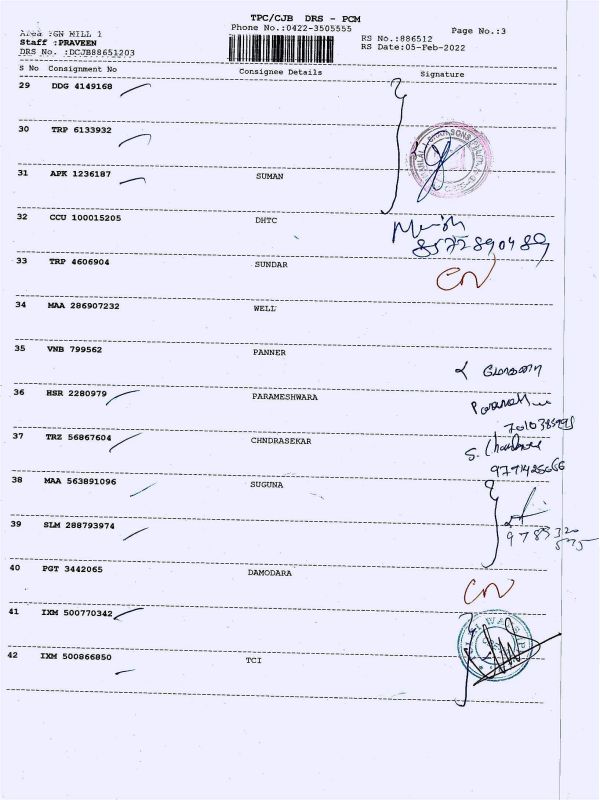 TPC/CJB DRS - PCM
Phone No.:0422-3505555
Page No.:3
Area :GN MILL 1
Staff :PRAVEEN
DRS No. :DCJB88651203
RS No.:886512
RS Date:05-Feb-2022
S No Consignment No Consignee Details Signature
29 DDG 4149168
30 TRP 6133932
31 APK 1236187 SUMAN
32 CCU 100015205 DHTC
8572890489
33 TRP 4606904 SUNDAR
CN
34 MAA 286907232 WELL
35 VNB 799562 PANNER
36 HSR 2280979 PARAMESHWARA
37 TRZ 56867604 CHNDRASEKAR
38 MAA 563891096 SUGUNA
39 SLM 288793974
40 PGT 3442065 DAMODARA
CN
41 IXM 500770342
42 IXM 500866850 TCI